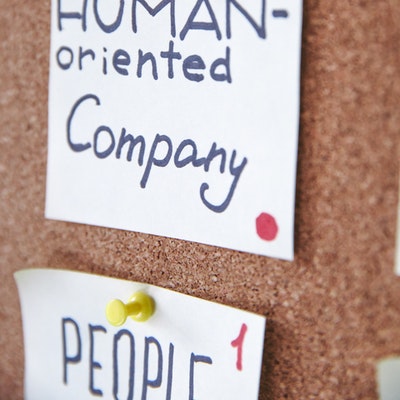 HUMAN-
oriented
Company
PEOPLE 1